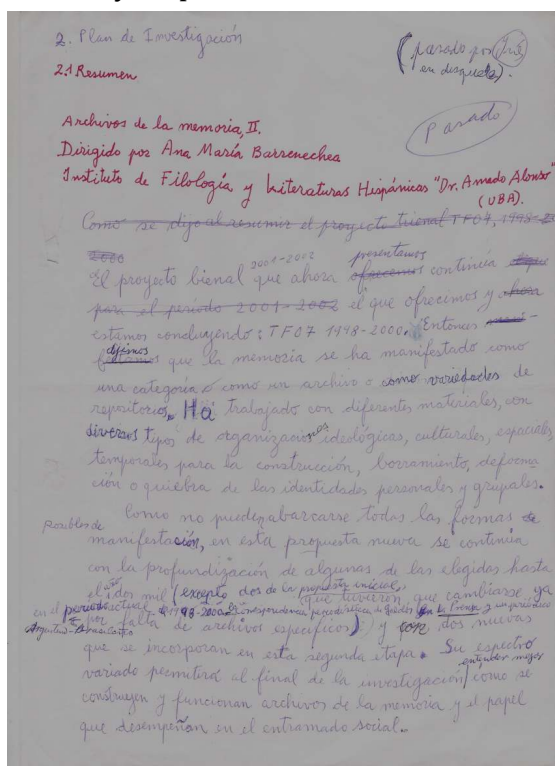 2. Plan de Investigación
(pasado por José
en disquete).
2.1 Resumen
Pasado
Archivos de la memoria, II.
Dirigido por Ana María Barrenechea
Instituto de Filología y Literaturas Hispánicas "Dr. Amado Alonso"
(UBA).
Como se dijo al resumir el proyecto trienal TF07, 1998-2000
2001-2002 presentamos
El proyecto bienal que ahora ofrecemos continúa
para el período 2001-2002 el que ofrecimos y ahora
estamos concluyendo: TF07 1998-2000. Entonces
dijimos
que la memoria se ha manifestado como
una categoría o como un archivo o como variedades de
repositorios. Ha trabajado con diferentes materiales, con
diversos tipos de organizaciones ideológicas, culturales, espaciales,
temporales para la construcción, borramiento, deforma
ción o quiebra de las identidades personales y grupales.
Como no pueden abarcarse todas las formas
posibles de manifestación, en esta propuesta nueva se continúa
con la profundización de algunas de las elegidas hasta
el año dos mil (excepto dos de la propuesta inicial,
que tuvieron que cambiarse ya
en el período actual 1998-2000
por falta de archivos específicos) y con dos nuevas
que se incorporan en esta segunda etapa. Su espectro
variado permitirá al final de la investigación entender mejor como se
construyen y funcionan archivos de la memoria y el papel
que desempeñan en el entramado social.